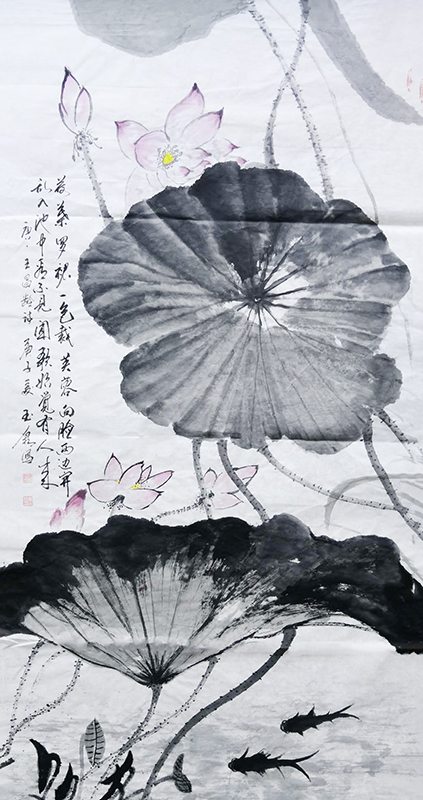 荷葉罗裙一色裁芙蓉向脸两边开
乱入池中看不见闻歌始觉有人来
唐人王昌龄诗